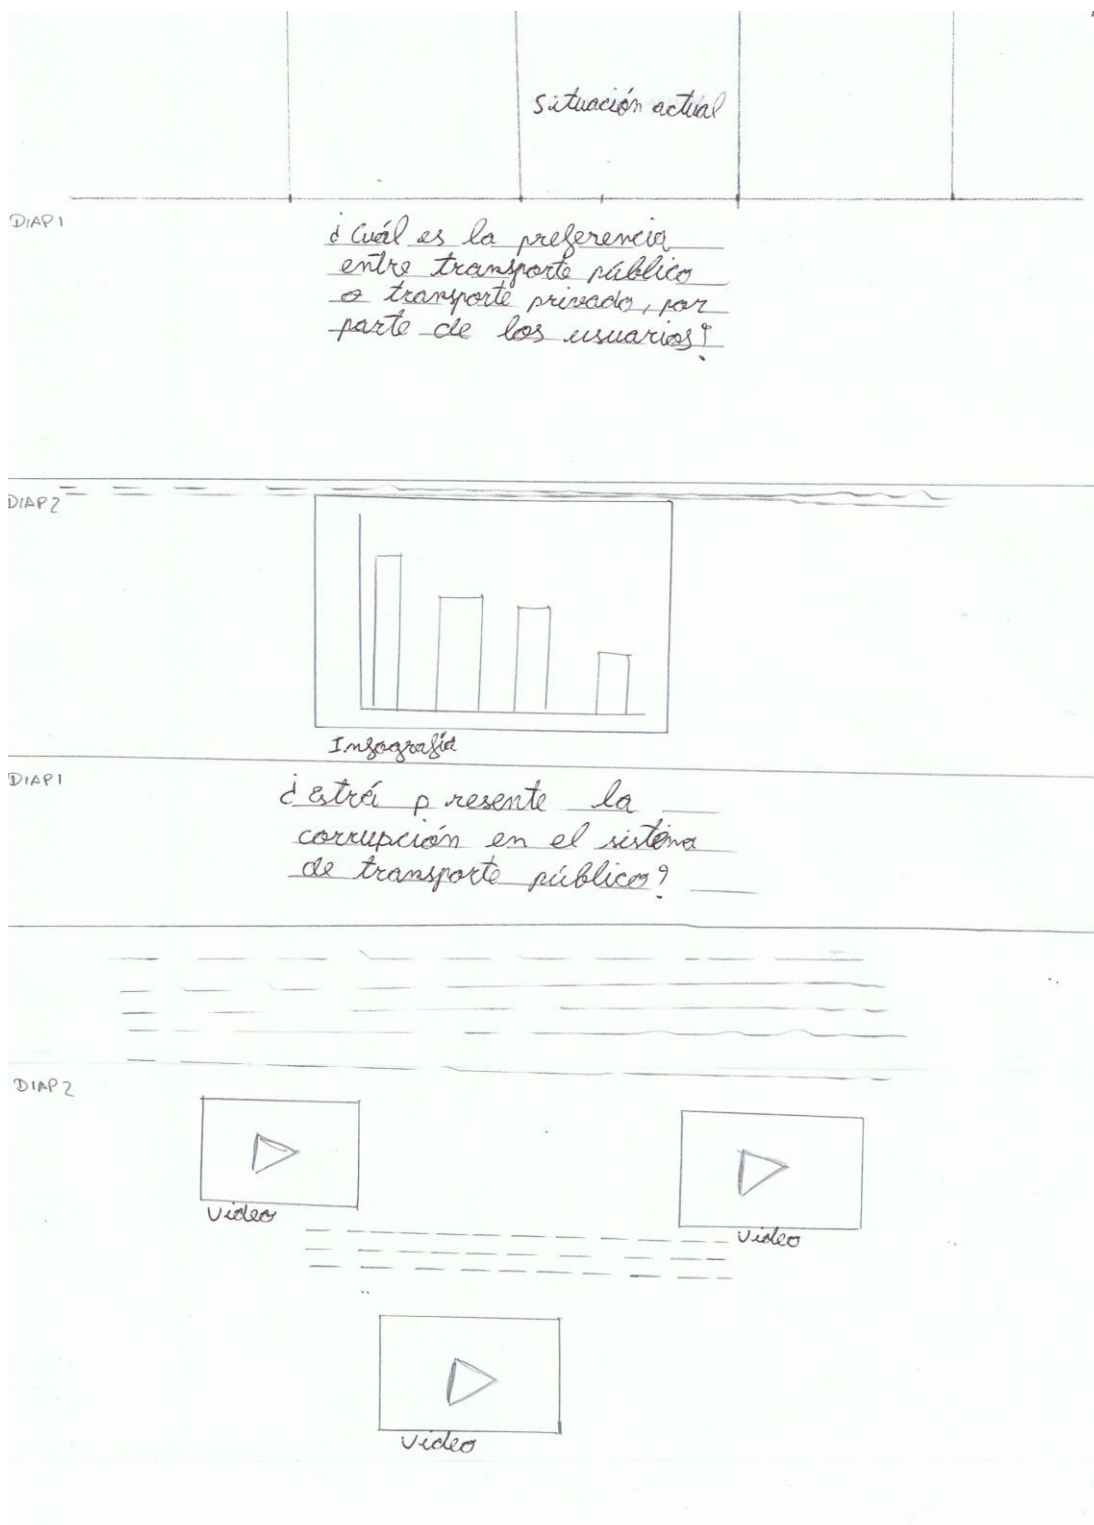 Situación actual
DIAP 1
¿Cuál es la preferencia
entre transporte público
o transporte privado, por
parte de los usuarios?
DIAP 2
Infografía
DIAP 1
¿Está presente la
corrupción en el sistema
de transporte público?
DIAP 2
Video
Video
Video